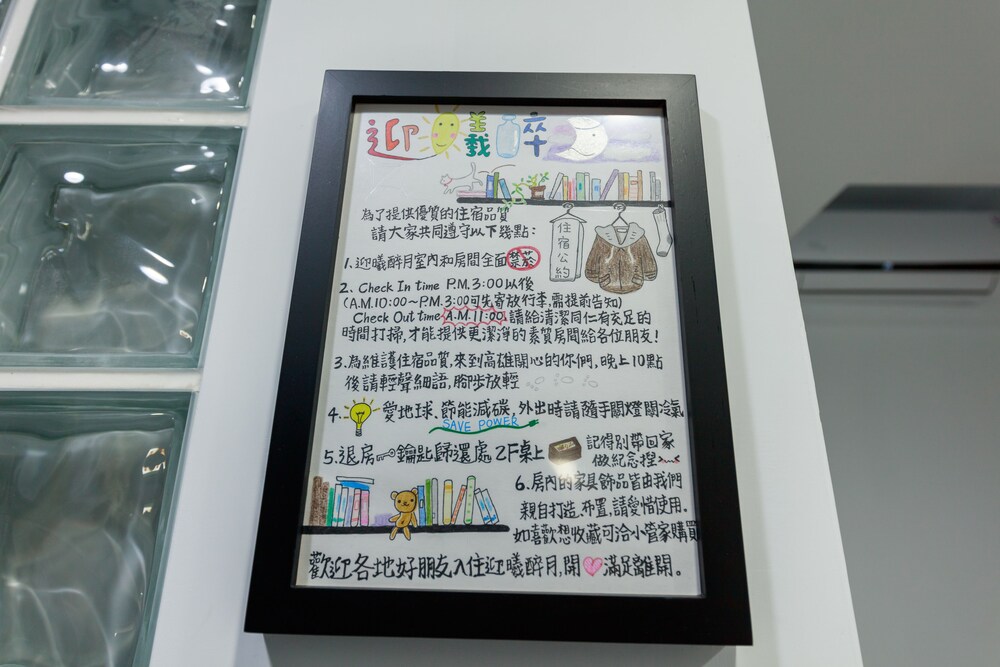 迎曦醉月
為了提供優質的住宿品質
請大家共同遵守以下幾點：
住宿公約
1. 迎曦醉月室內和房間全面禁菸
2. Check In time P.M. 3:00 以後
(A.M.10:00～P.M. 3:00可先寄放行李,需提前告知)
Check Out time A.M. 11:00, 請給清潔同仁有充足的
時間打掃,才能提供更潔淨的素質房間給各位朋友!
3. 為維護住宿品質,來到高雄開心的你們,晚上10點
後請輕聲細語,腳步放輕
4. 愛地球.節能減碳,外出時請隨手關燈關冷氣
SAVE POWER
5. 退房 鑰匙歸還處 2F桌上
記得別帶回家
做紀念捏
6. 房內的家具飾品皆由我們
親自打造.布置.請愛惜使用.
如喜歡想收藏可洽小管家購買
歡迎各地好朋友入住迎曦醉月,開♡滿足離開。